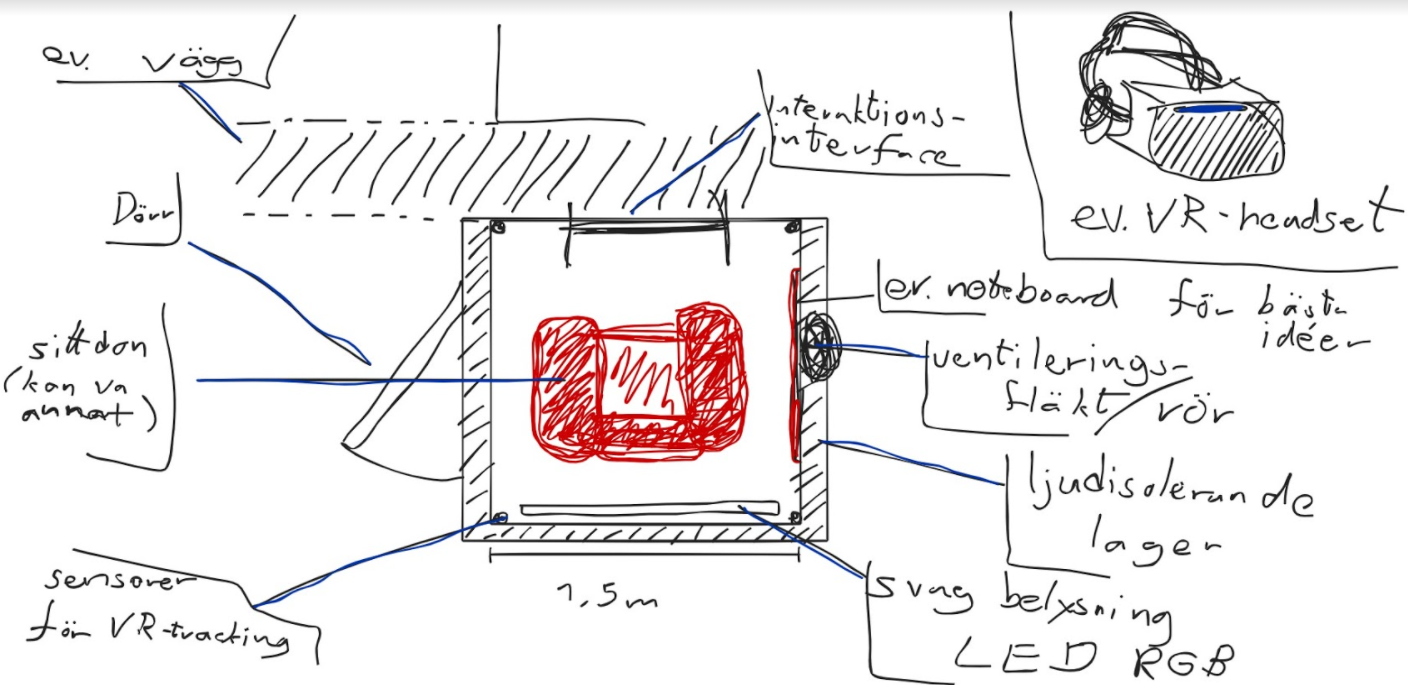 ev. vägg
Interaktions-
interface
ev. VR-headset
Dörr
ev. noteboard för bästa
idéer
sittdon
(kan va
annat)
ventilerings-
fläkt/rör
ljudisolerande
lager
sensorer
för VR-tracking
1,5m
svag belysning
LED RGB